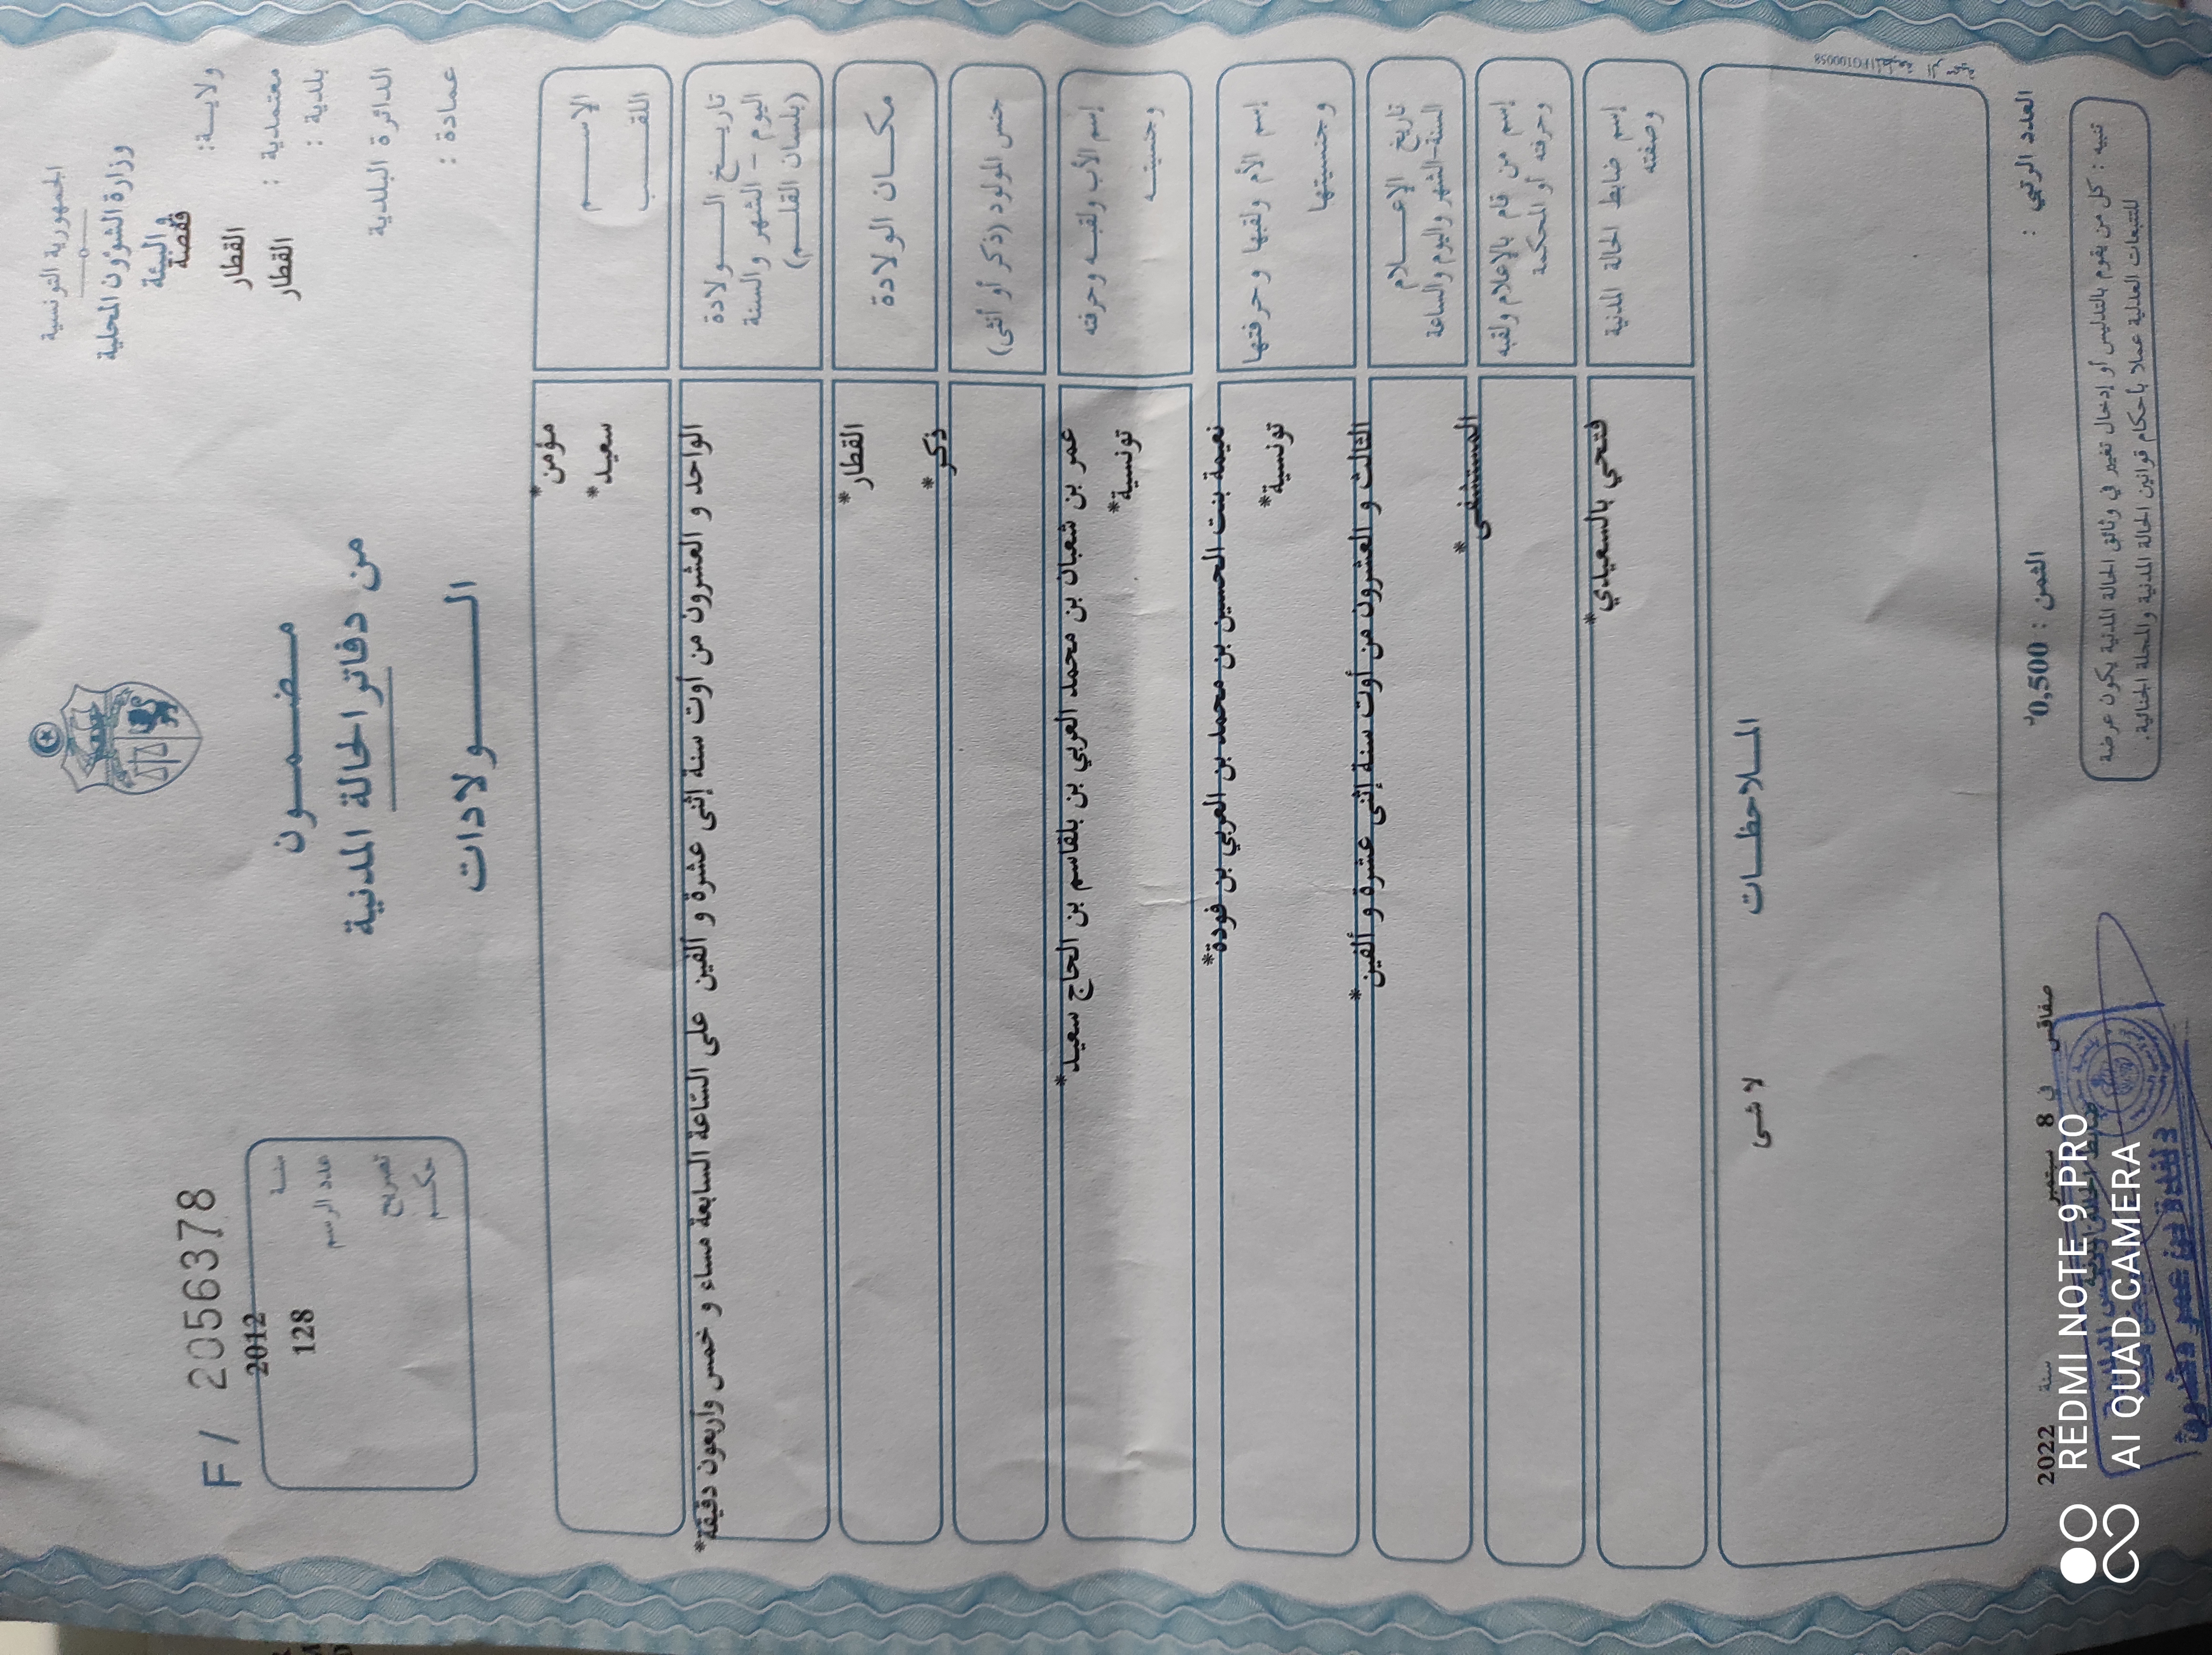 الجمهورية التونسية
وزارة الشؤون المحلية
والبيئة
ولايـة: قفصة
معتمدية : القطار
بلدية : القطار
الدائرة البلدية
عمادة :
مـضـمـون
من دفاتر الحالة المدنية
الـولادات
F / 2056378
سنـة 2012
عدد الرسم 128
تصريح
حكـم
الإسـم مؤمن*
اللقـب سعيد*
تاريـخ الـولادة
اليوم - الشهر والسنة
(بلسان القلـم)
الواحد و العشرون من أوت سنة إثنى عشرة و ألفين على السّاعة السابعة مساء و خمس وأربعون دقيقة*
مكـان الولادة القطار*
جنس المولود (ذكر أو أنثى) ذكر*
إسم الأب ولقبـه وحرفته عمر بن شعبان بن محمد العربي بن بلقاسم بن الحاج سعيد*
وجنسيتـه تونسية*
إسم الأم ولقبها وحرفتها نعيمة بنت الحسين بن محمد بن العربي بن فودة*
وجنسيتها تونسية*
تاريخ الإعـلام
السنة-الشهر واليوم والساعة
الثالث و العشرون من أوت سنة إثنى عشرة و ألفين*
إسم من قام بالإعلام ولقبه
وحرفته أو المحكمة
المستشفى*
إسم ضابط الحالة المدنية
وصفته
فتحي بالسعيدي*
المـلاحظـات
لا شى
العدد الرتبي :
الثمن : 0,500د
صفاقس في 8 سبتمبر سنة 2022
ضابط الحالة المدنية
تنبيه : كل من يقوم بالتدليس أو إدخال تغيير في وثائق الحالة المدنية يكون عرضة
للتتبعات العدلية عملا بأحكام قوانين الحالة المدنية والمجلة الجنائية.
REDMI NOTE 9 PRO
AI QUAD CAMERA